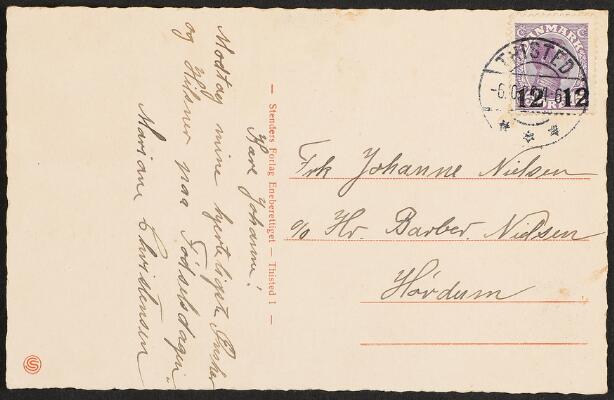 Kære Johanne!
Modtag mine hjerteligste Ønsker
og Hilsner paa Fødselsdagen.
Mariane Christensen
— Stenders Forlag Eneberettiget — Thisted 1 —
DANMARK
THISTED
12 12
Frk Johanne Nielsen
c/o Hr. Barber. Nielsen
Hørdum